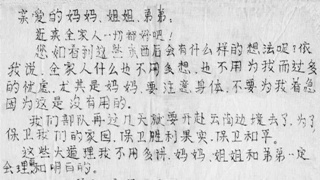 亲爱的妈妈、姐姐、弟弟：
近来全家人一切都好吧！
您如看到这然东西后会有什么样的想法呢？依
我说，全家人什么也不用多想，也不用为我而过多
的忧虑，尤其是妈妈，要注意身体，不要为我着急
因为这是没有用的。
我们部队再这几天就要开赴云南边境去了，为了
保卫我们的家园，保卫胜利果实，保卫和平。
这些大道理我不用多讲，妈妈，姐姐和弟弟一定
会理和明白的。